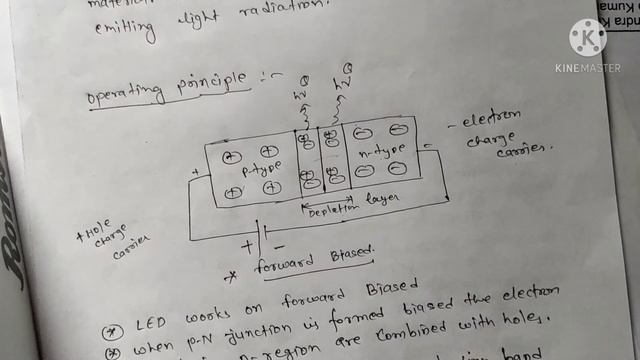 emitting light radiation.
Operating principle :-
hν hν
+ p-type n-type -
- electron
charge
carrier.
Depletion layer
+ Hole
charge
carrier
+ -
* forward Biased.
* LED works on forward Biased
* when p-N junction is formed biased the electron
region are combined with holes.
band
KINEMASTER